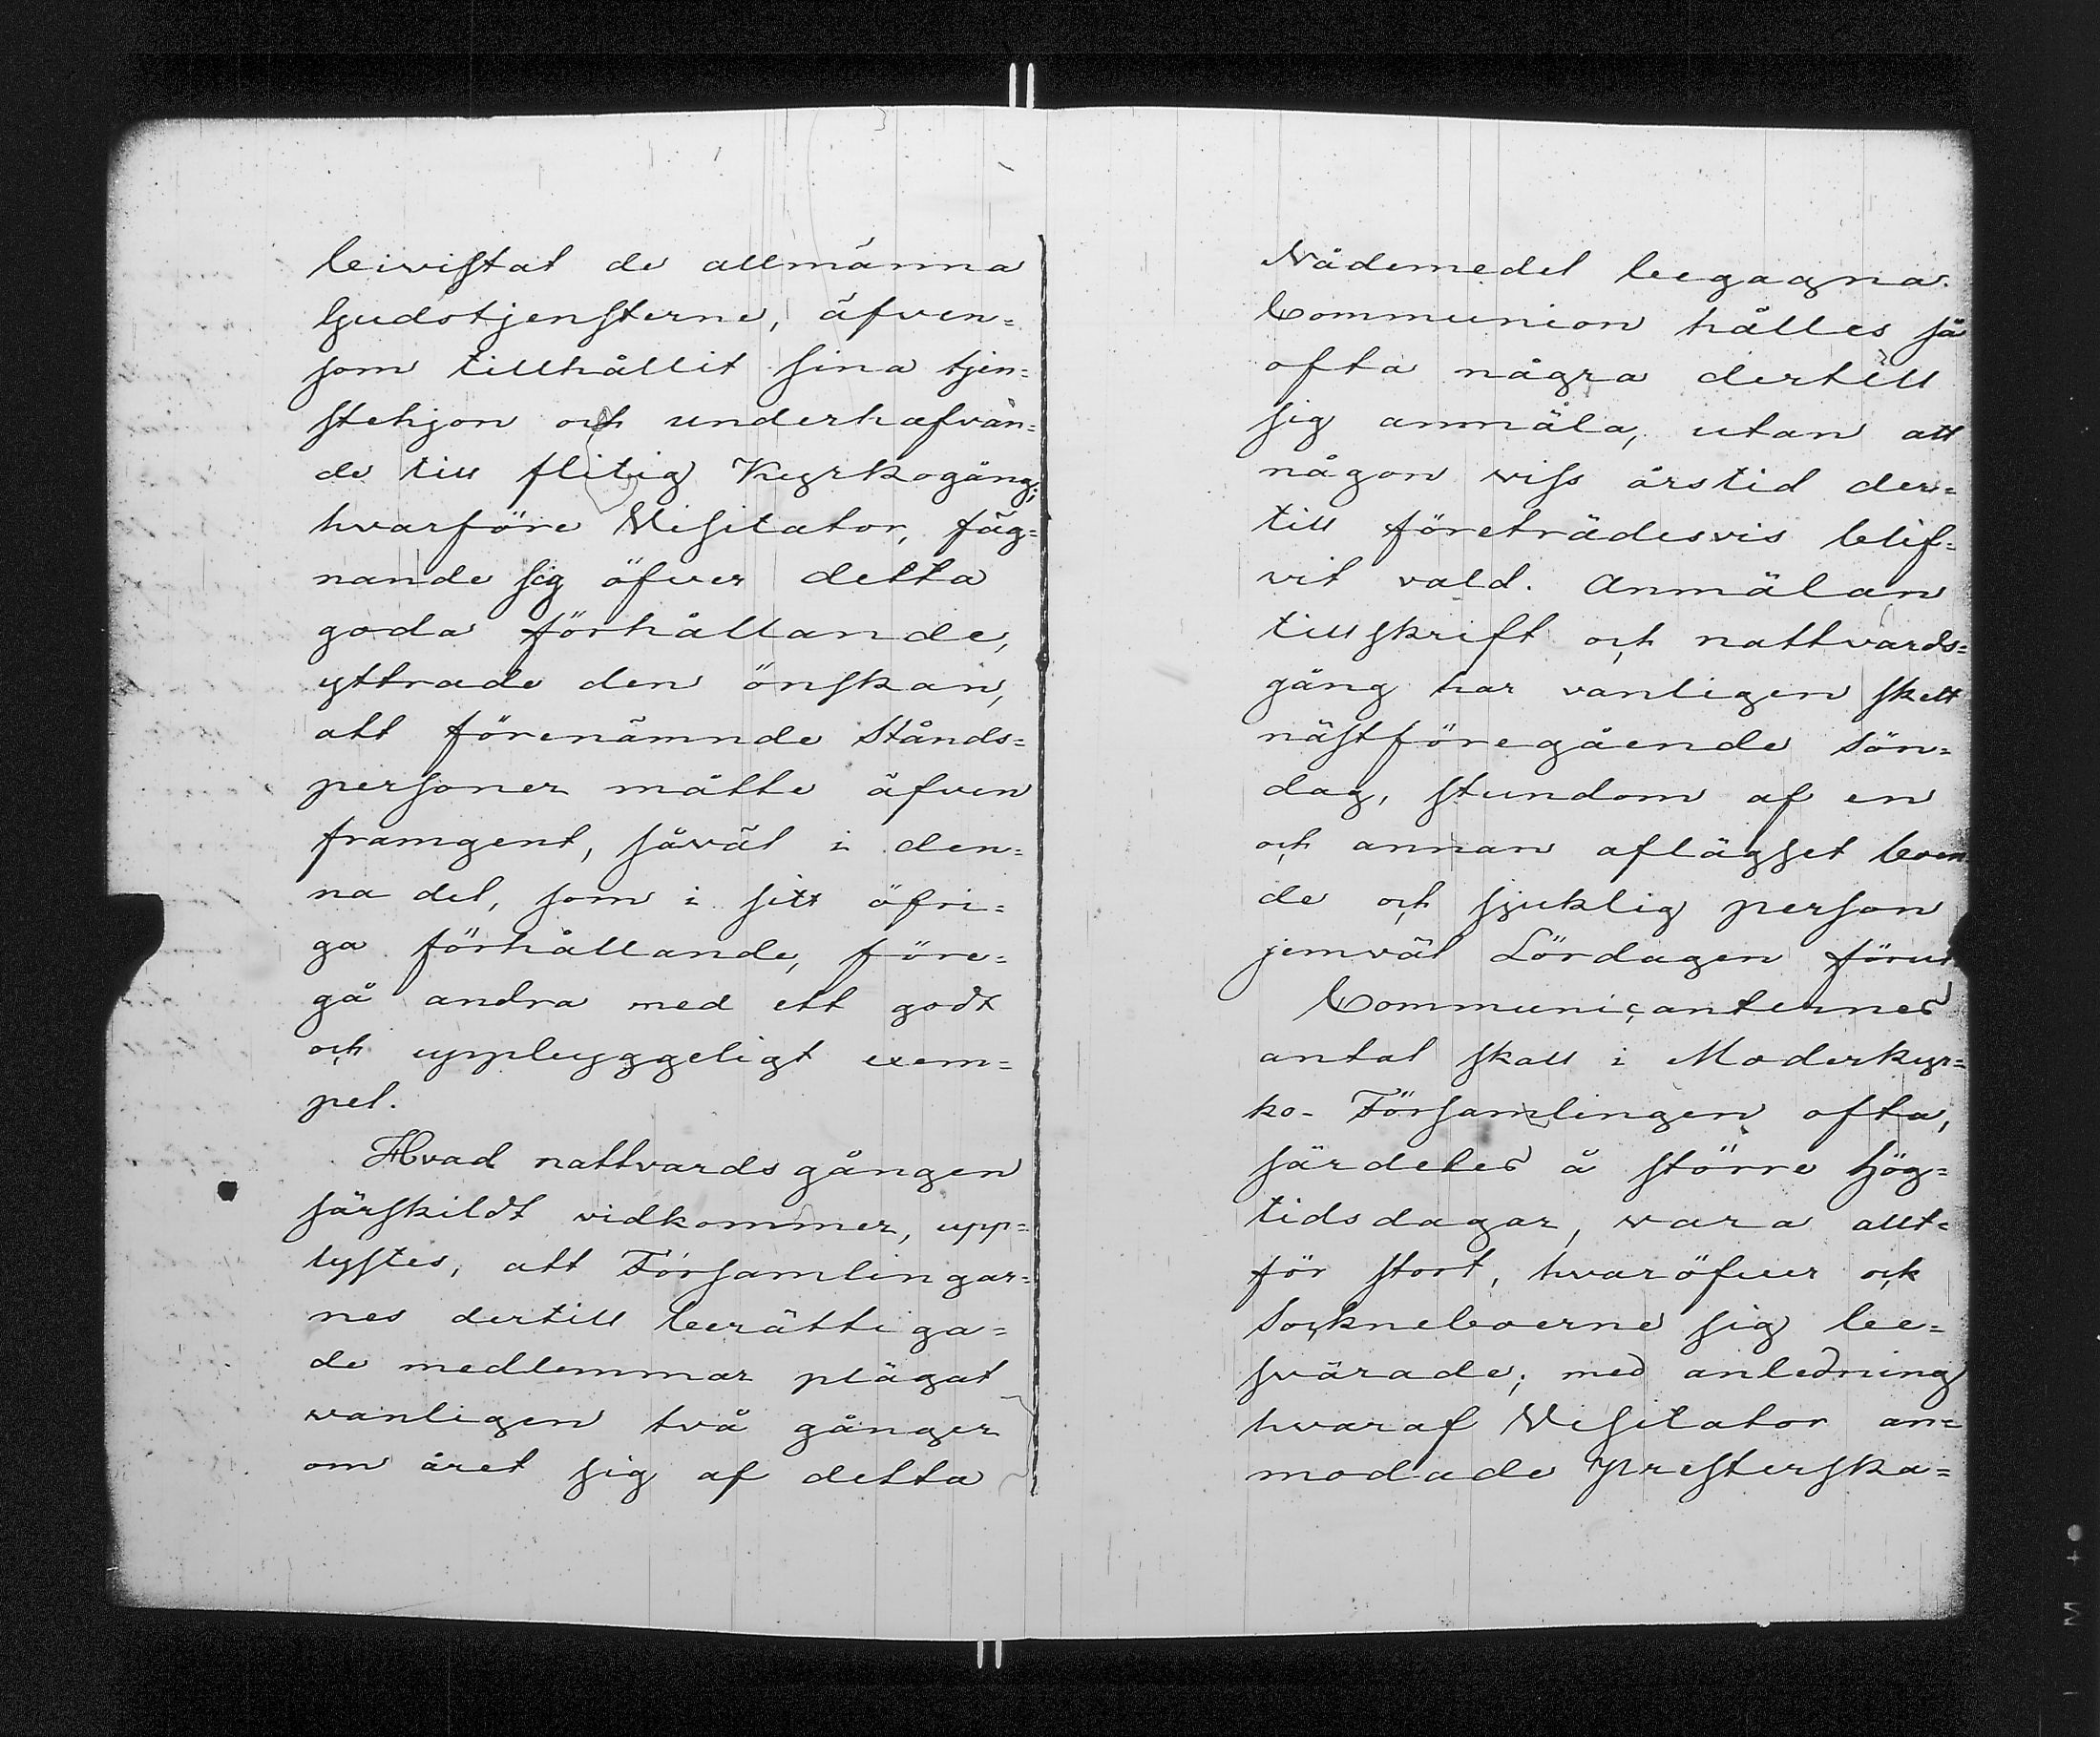 beivistat de allmänna
Gudstjensterne, äfven=
som tillhållit sina tjen=
stehjon och underhafvan=
de till flitig Kyrkogång;
hvarföre Visitator, fäg=
nande sig öfver detta
goda förhållande,
yttrade den önskan,
att förenämnde Stånds=
personer måtte äfven
framgent, såväl i den=
na del, som i sitt öfri=
ga förhållande, före=
gå andra med ett godt
och uppbyggeligt exem=
pel.
Hvad nattvardsgången
särskildt vidkommer, upp=
lystes, att Församlingar=
nes dertill berättiga=
de medlemmar plägat
vanligen två gånger
om året sig af detta
Nådemedel begagna.
Communion hålles så
ofta några dertill
sig anmäla, utan att
någon viss årstid der=
till företrädesvis blif=
vit vald. Anmälan
till skrift och nattvards=
gång har vanligen skett
nästföregående Sön=
dag, stundom af en
och annan aflägset boen
de och sjuklig person
jemväl Lördagen förut
Communicanternes
antal skall i Moderkyr=
ko-Församlingen ofta,
särdeles å större hög=
tidsdagar, vara allt=
för stort, hvaröfver ock
Sockneboerne sig be=
svärade; med anledning
hvaraf Visitator an=
modade Presterska=